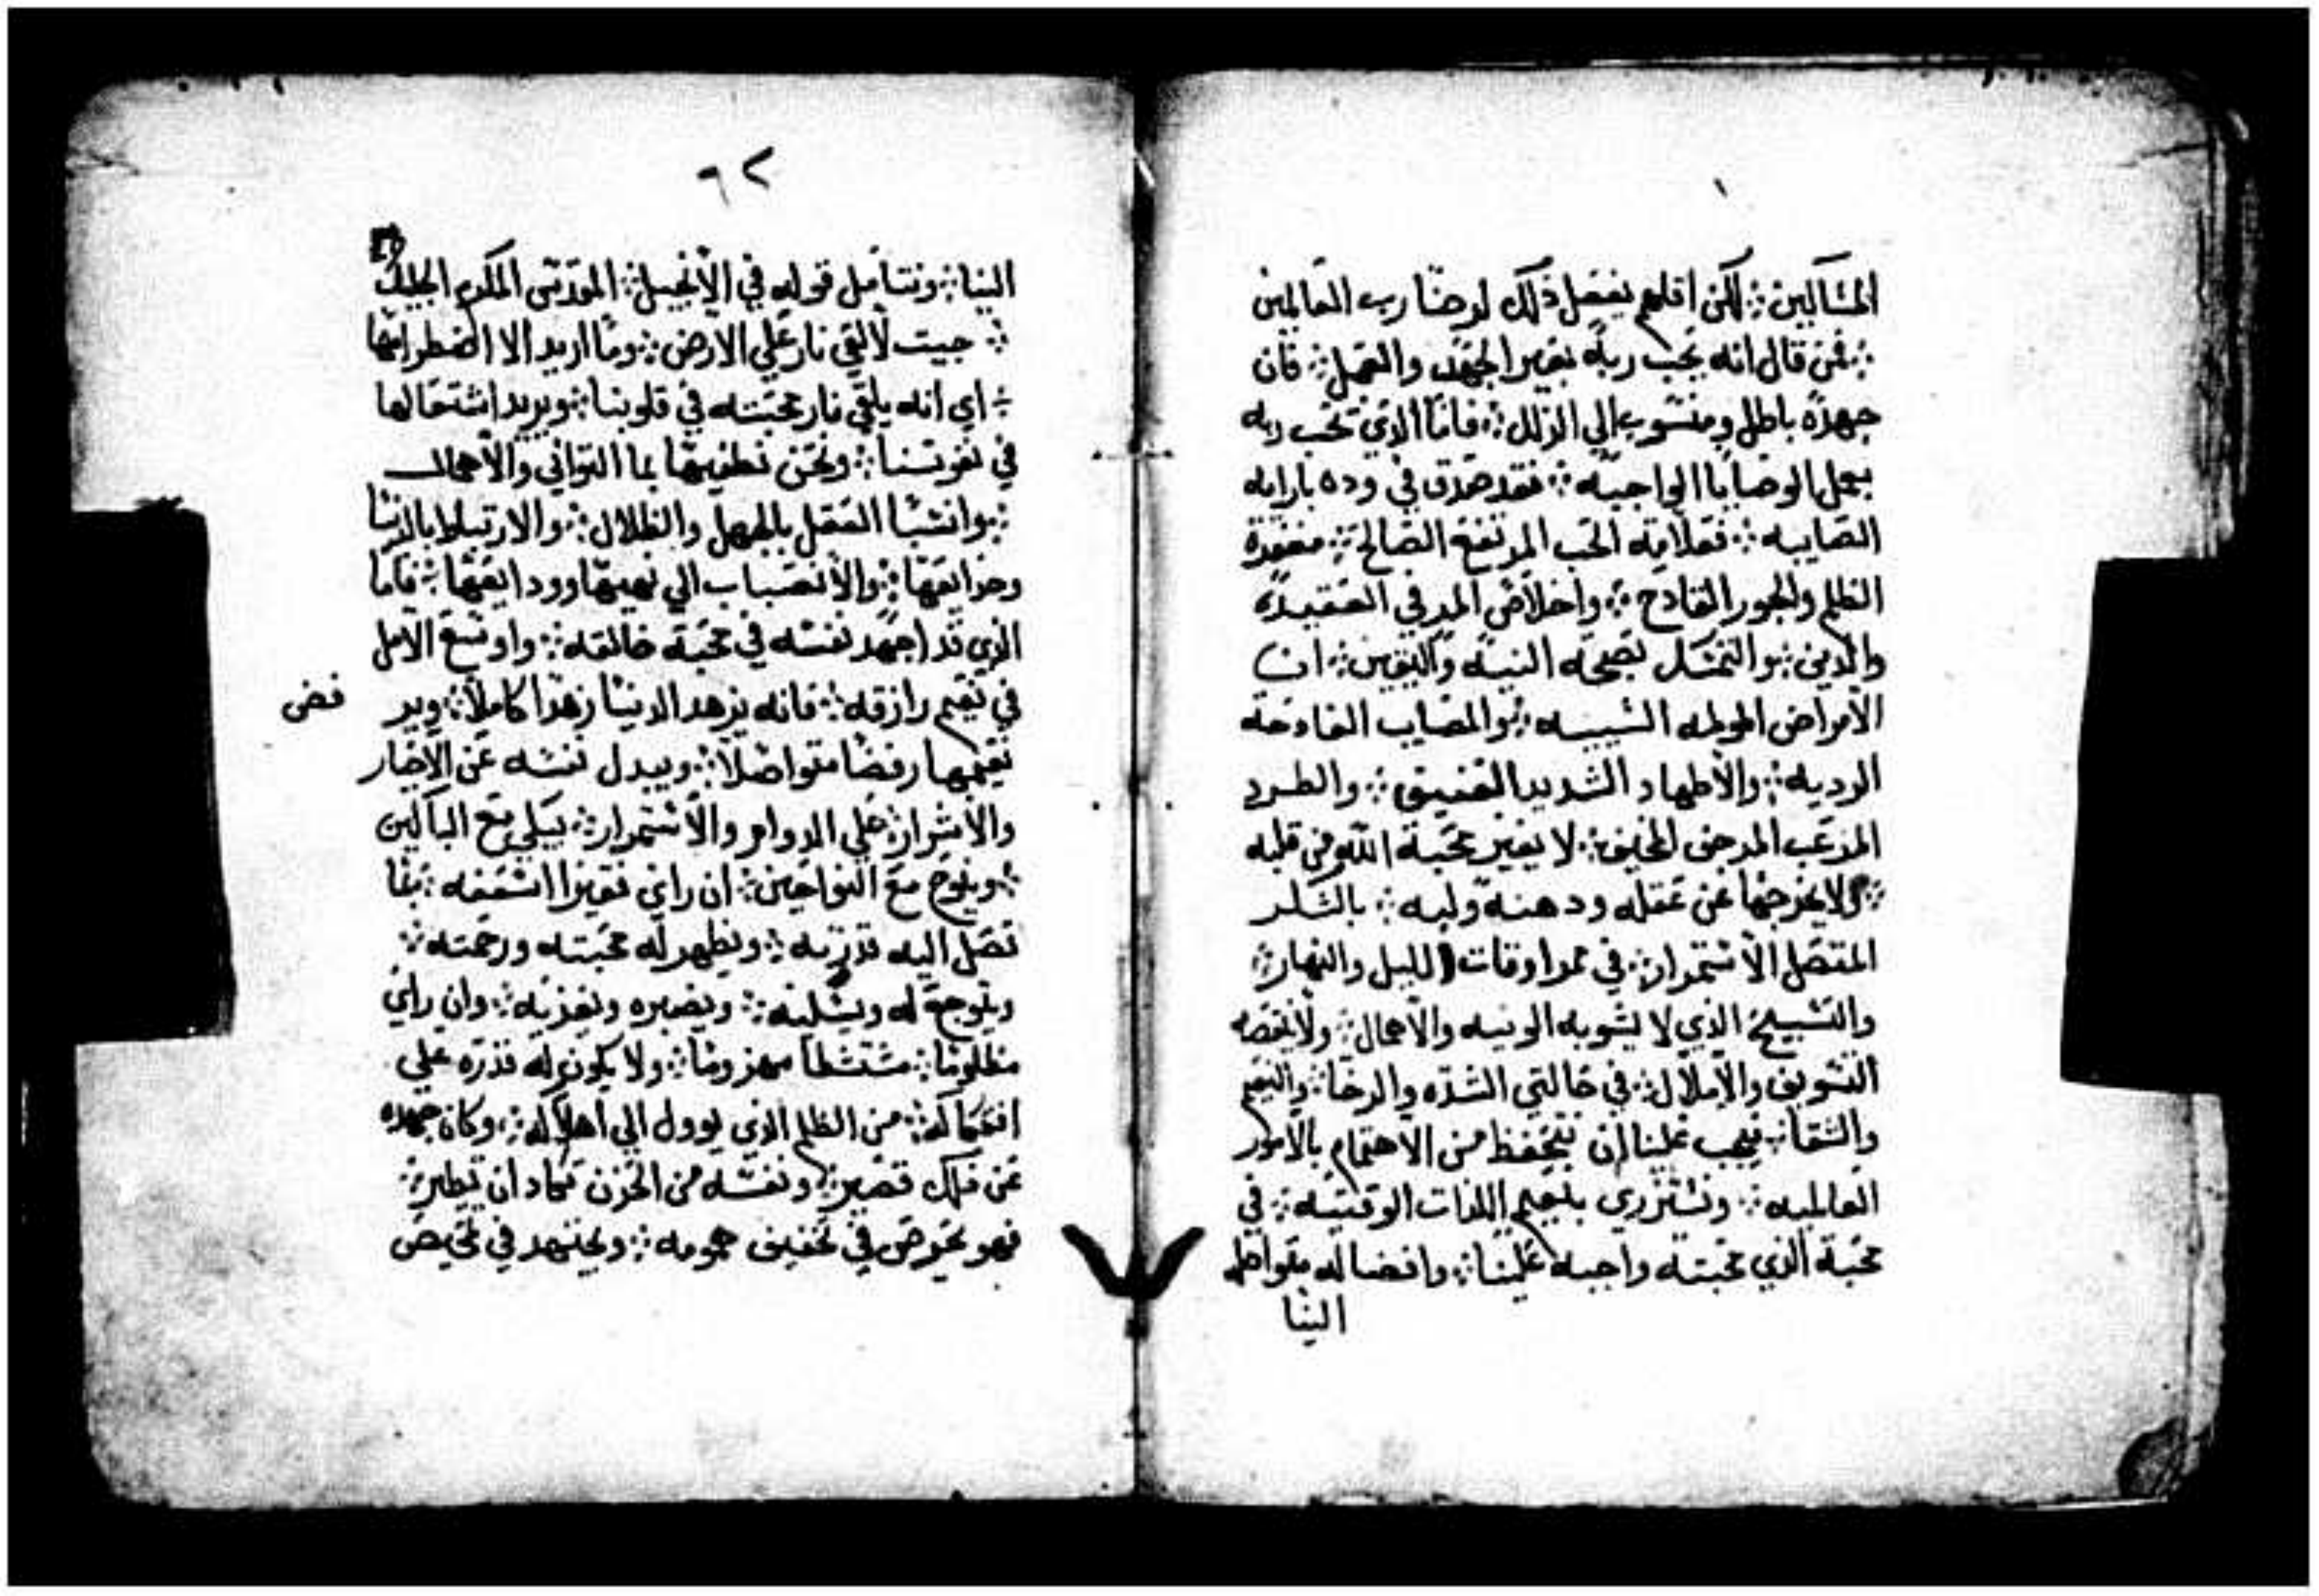 المساكين ۞ لكن اقلهم يفعل ذلك لرضا رب العالمين
۞ فمن قال انه يحب ربه بغير الجهد والعمل ۞ فان
جهده باطل ومنسوب الي الزلل ۞ فاما الذي يحب ربه
بعمل الوصايا الواجبه ۞ فقد صدق في وده بارايه
الصايبه ۞ فعلامة الحب المرتفع الصالح ۞ مفقودة
الظلم والجور القادح ۞ واخلاص المر في العقيدة
والدين ۞ والتمسك بصحة النية واليقين ۞ ان
الامراض المولمه الشييه ۞ والمصايب الفادحة
الرديه ۞ والاطهاد الشديد العنيق ۞ والطرد
المرعب المرجف المخيف ۞ لا يغير محبة الله من قلبه
۞ ولا يخرجها عن عقله ودهنه ولبه ۞ بالشكر
المتصل الاستمرار ۞ في ممر اوقات الليل والنهار ۞
والتسبيح الذي لا يشوبه الونيه والاهمال ۞ ولا ينقصه
التسويف والاملال ۞ في حالتي الشده والرخا ۞ والنعيم
والشقا ۞ فيجب علينا ان نتحفظ من الاهتمام بالامور
العالميه ۞ ونستزري بنعيم اللذات الوقتيه ۞ في
محبة الذي محبته واجبه علينا ۞ وافضاله متواصله
الينا
٦٢
الينا ۞ ونتامل قوله في الانجيل ۞ المقدس المكرم الجليل
۞ جيت لالقي نار علي الارض ۞ وما اريد الا اضطرامها
۞ اي انه يلقي نار محبته في قلوبنا ۞ ويريد اشتعالها
في نفوسنا ۞ ونحن نطفيها بما التواني والاهمال
۞ وانشبا العقل بالجهل والظلال ۞ والارتباط بالدنيا
وخدايعها ۞ والانصباب الي نعيمها وودايعها ۞ فاما
الذي قد اجهد نفسه في محبة خالقه ۞ واوسع الامل
في نعيم رازقه ۞ فانه يزهد الدنيا زهدا كاملا ۞ وير فض
نعيمها رفضا متواصلا ۞ ويبدل نفسه عن الاخيار
والاشرار ۞ علي الدوام والاستمرار ۞ يبكي مع الباكين
۞ وينوح مع النواحين ۞ ان راي فقيرا اسعفه ۞ بما
تصل اليه قدرته ۞ ويظهر له محبته ورحمته ۞
ويتوجع له ويسليه ۞ ويصبره ويعزيه ۞ وان راي
مظلوما ۞ مشتطا مهزوما ۞ ولا يكون له قدره علي
افتكاكه ۞ من الظلم الذي يوول الي اهلاكه ۞ وكان جهده
عن ذلك قصير ۞ ونفسه من الحزن تكاد ان تطير ۞
فهو يحرص في تخفيف همومه ۞ ويجتهد في تمحيص